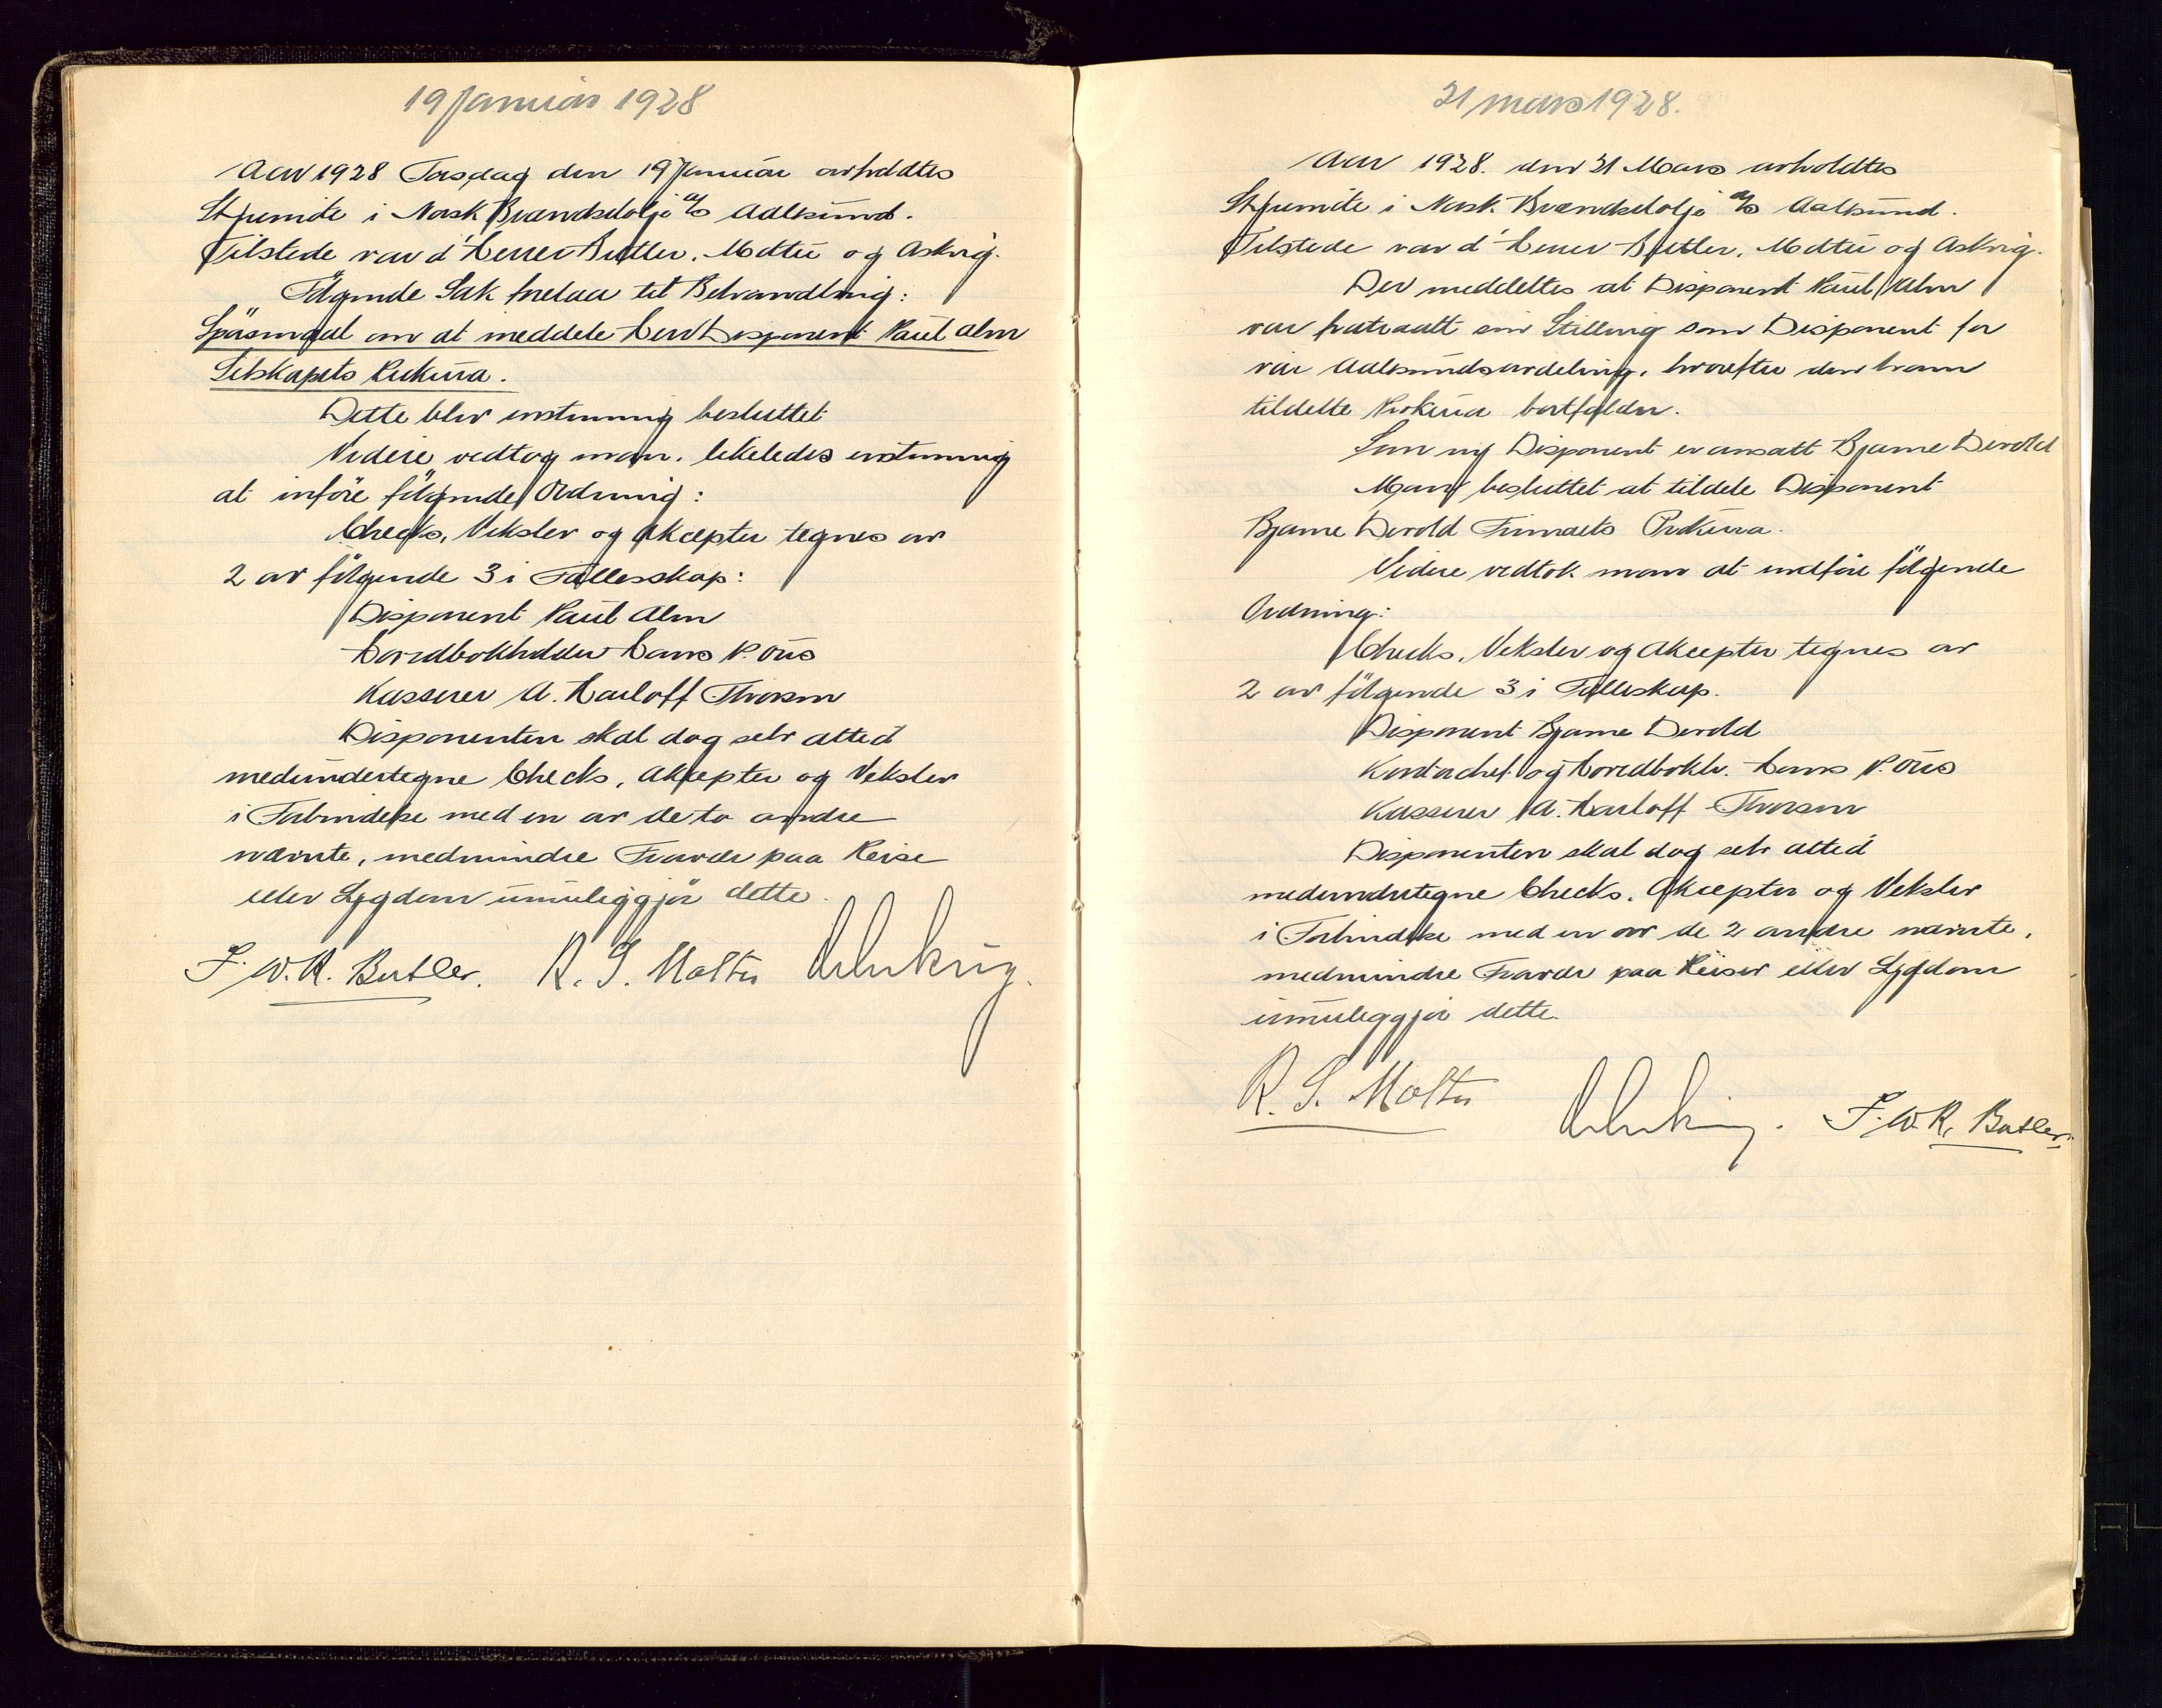 19 Januar 1928
Aar 1928 Torsdag den 19 Januar avholdtes
Styremøte i Norsk Brændselolje A/S Aalesund.
Tilstede var d'Herrer Butler, Møltu og Askvig.
Følgende Sak forelaa til Behandling:
Spørsmaal om at meddele Herr Disponent Paul Alm
Selskapets Prokura.
Dette blev enstemmig besluttet
Videre vedtog man, likeledes enstemmig
at införe følgende Ordning:
Checks, Veksler og Akcepter tegnes av
2 av følgende 3 i Fællesskap:
Disponent Paul Alm
Hovedbokholder Hans P. Øus
Kasserer A. Harloff Thorsen
Disponenten skal dog selv altid
medundertegne Checks, Akcepter og Veksler
i Forbindelse med en av de to andre
nævnte, medmindre Fravær paa Reise
eller Sygdom umuliggjør dette.
F. W. R. Butler. R. S. Møltu
21 mars 1928.
Aar 1928. den 21 Mars avholdtes
Styremöte i Norsk Brændselolje A/S Aalesund.
Tilstede var d'Herrer Butler, Møltu og Askvig.
Der meddeltes at Disponent Paul Alm
var fratraadt sin Stilling som Disponent for
vår Aalesundsavdeling, hvorefter den ham
tildelte Prokura bortfalder.
Som ny Disponent er ansatt Bjarne Devold
Man besluttet at tildele Disponent
Bjarne Devold Firmaets Prokura.
Videre vedtok man at indføre følgende
Ordning:
Checks, Veksler og Akcepter tegnes av
2 av følgende 3 i Fælleskap.
Disponent Bjarne Devold
Kontorchef og Hovedbokh. Hans P. Øus
Kasserer A. Harloff Thorsen
Disponenten skal dog selv altid
medundertegne Checks, Akcepter og Veksler
i Forbindelse med en av de 2 andre nævnte,
medmindre Fravær paa Reiser eller Sygdom
umuliggjør dette.
R. S. Møltu F. W. R. Butler.